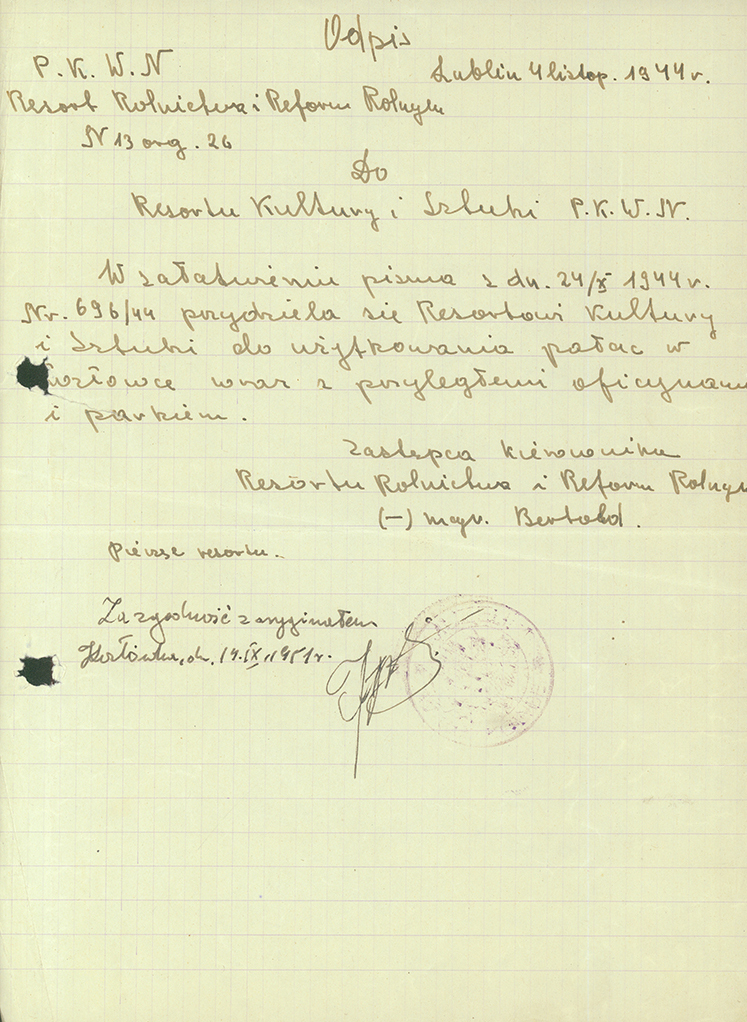 Odpis
P. K. W. N Lublin 4 listop. 1944 r.
Resort Rolnictwa i Reform Rolnych
N 13 org. 26
Do
Resortu Kultury i Sztuki P. K. W. N.
W załatwieniu pisma z dn. 24/X 1944 r.
Nr. 696/44 przydziela się Resortowi Kultury
i Sztuki do użytkowania pałac w
Kozłówce wraz z przyległemi oficynami
i parkiem.
Zastępca Kierownika
Resortu Rolnictwa i Reform Rolnych
(-) mgr. Bertold.
Pieczęć resortu.
Za zgodność z oryginałem
Kozłówka, dn. 14.IX.1951 r.